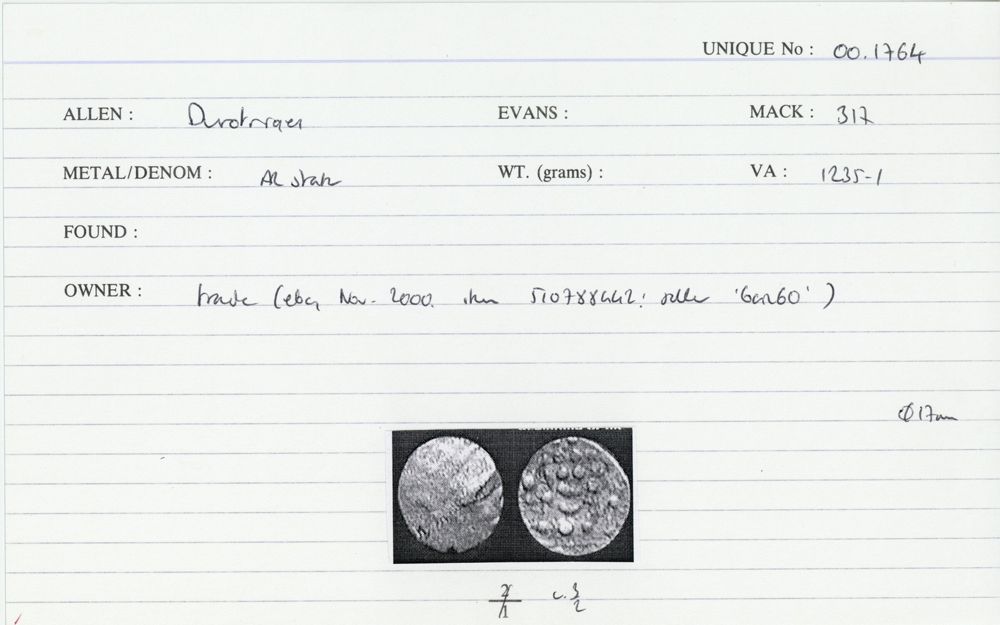 UNIQUE No : 00.1764
ALLEN : Durotriges EVANS : MACK : 317
METAL/DENOM : AR stater WT. (grams) : VA : 1235-1
FOUND :
OWNER : trade (ebay Nov. 2000. item 510788442: seller ' ')
Ø 17mm
2/1 c. 3/2